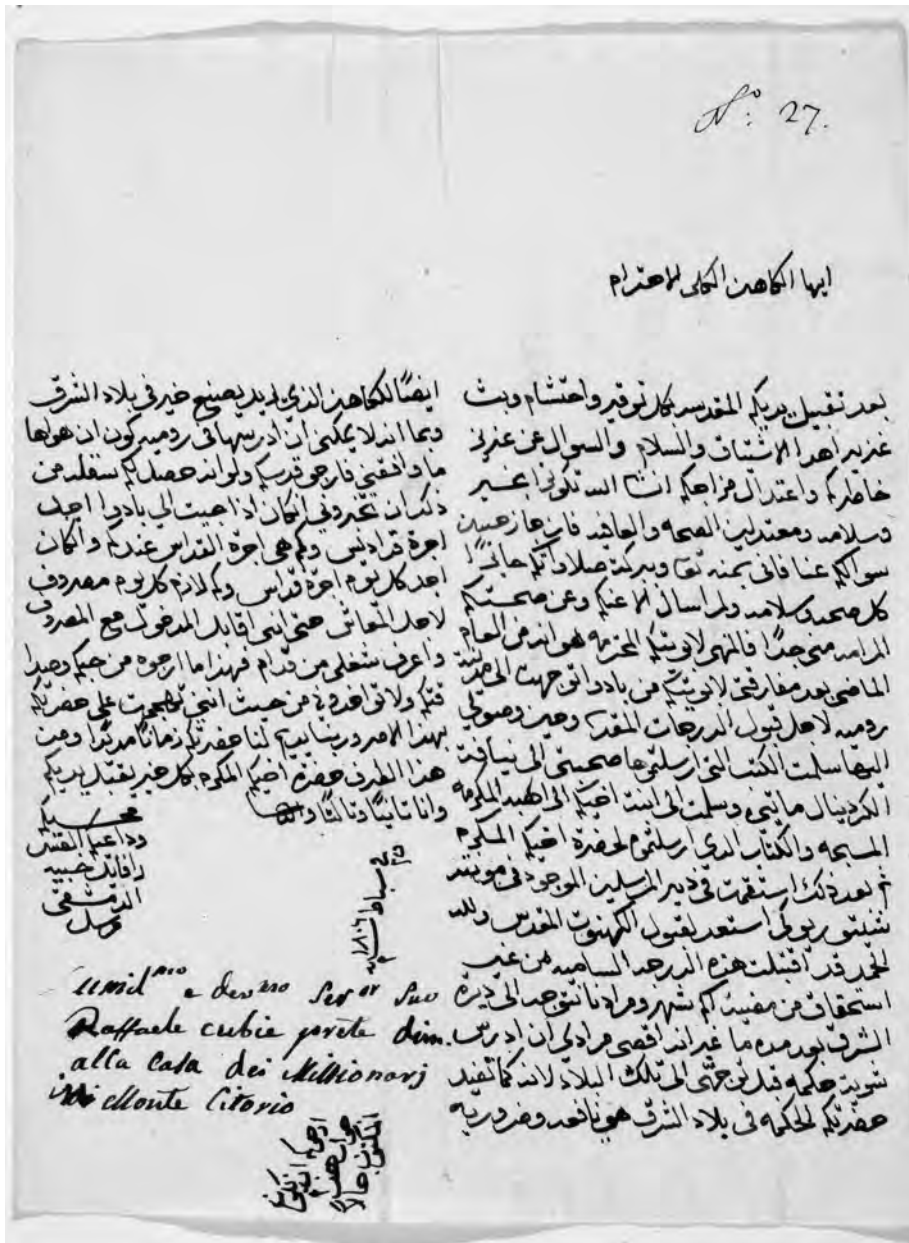 N.º 27.
ايها الكاهن الكلي الاحترام
بعد تقبيل يديكم المقدسه بكل توقير واحتشام وبث
غزير اهدا الاشتياق والسلام والسوال عن عزيز
خاطركم واعتدال مزاجكم انشا الله تكونوا بخير
وسلامه ومعتدلين الصحه والعافيه فان جاز حسن
سوالكم عنا فاني بمنه تعا وببركة صلاواتكم حايزًا
كل صحه وسلامه ولم اسال الا عنكم وعن صحتكم
المرامه مني جدًا فالمنهي لابوتكم المحترمه هو انه من العام
الماضي بعد مفارقتي لابوتكم من بادوا توجهت الى مدينة
روميه لاجل قبول الدرجات المقدسه وحين وصولي
اليها سلمت الكتب التي ارسلتموها صحبتي الى نيافة
الكردينال ماتيي وسلمت الى ابنت اخيكم الراهبه المكرمه
المسبحه والكتاب الذي ارسلتموه لحضرة اخيكم المكرم
ثم بعد ذلك استقمت في دير المرسلين الموجود في مونته
شيتوريو لكي استعد لقبول الكهنوت المقدس ولله
الحمد قد اقتبلت هذه الدرجه الساميه من غير
استحقاق من مضيت لكم شهر ومرادنا نتوجه الى ديرة
الشرق بعد مده ما غير انه اقصى مرادي ان ادرس
شويت حكمه قبل توجهي الى تلك البلاد لانه كما تفيد
حضرتكم الحكمه في بلاد الشرق هي نافعه وضروريه
ايضًا للكاهن الذي يريد يصنع خير في بلاد الشرق
وبما انه لا يمكني ان ادرسها في روميه كون ان هواها
ما وافقني فارجو قدسكم ولو انه حصل لكم سقله من
ذلك ان تخبروني انكان اذا جيت الى بادوا اجد
اجرة قداديس وكم هي اجرة القداس عندكم وانكان
اجد كل يوم اجرة قداس وكم لازم كل يوم مصروف
لاجل المعاش حتى انني اقابل المدخول مع المصروف
واعرف شغلي من قدام فهذا ما ارجوه من حبكم وصدا
قتكم ولا تواخذوني من حيث انني تهجمت على حضرتكم
بهذا الامر وربنا يديم لنا حضرتكم زمانًا مديدًا ومن
هذا الطرف حضرة اخيكم المكرم بكل خير يقبل يديكم
وانا ثانيًا وثالثًا
محسبكم
وداعيكم القس
رافائيل
الدمشقي
مرسل
umil.mo e dev.mo Ser.or Suo
Raffaele cubie prete dim.
alla Casa dei Missionarj
in Monte Citorio
ارجوكم ان يكون
جواب هذا
المكتوب حالاً